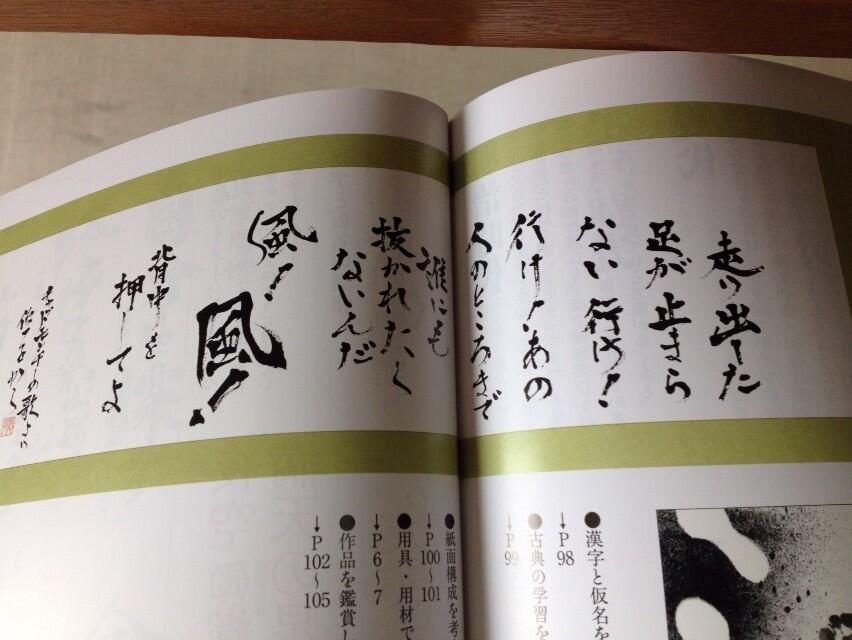 走り出した
足が止まら
ない 行け!
行け!あの
人のところまで
誰にも
抜かれたく
ないんだ
風!
風!
背中を
押してよ
チャットモンチーの歌より
●漢字と仮名を
↓P98
●古典の学習を
↓P99
●紙面構成を考
↓P100〜101
●用具・用材で
↓P6〜7
●作品を鑑賞し
↓P102〜105